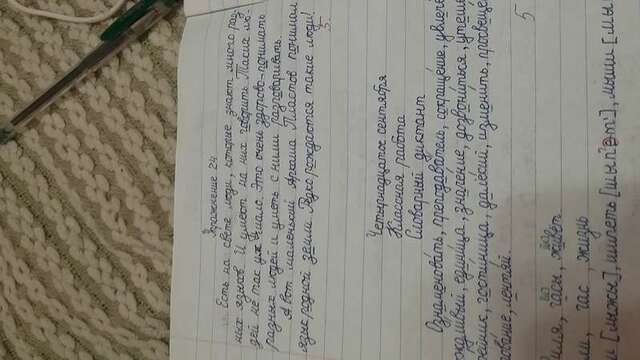 Упражнение 24
Есть на свете люди, которые знают много раз-
ных языков. И умеют на них говорить. Таких лю-
дей не так уж и мало. Это очень здорово - понимать
разных людей и уметь с ними разговаривать.
А вот маленький Арсаша Пластов понимал
язык родной земли. Редко рождаются такие люди!
5.
Четырнадцатое сентября
Классная работа
Словарный диктант
Ознаменовать, преподаватель, сокращение, увлеч
единица, значение, дозвониться, утеш
гостиница, далёкий, изменить, просвещ
5
жизнь
[лыжы], шипеть мыши [мы